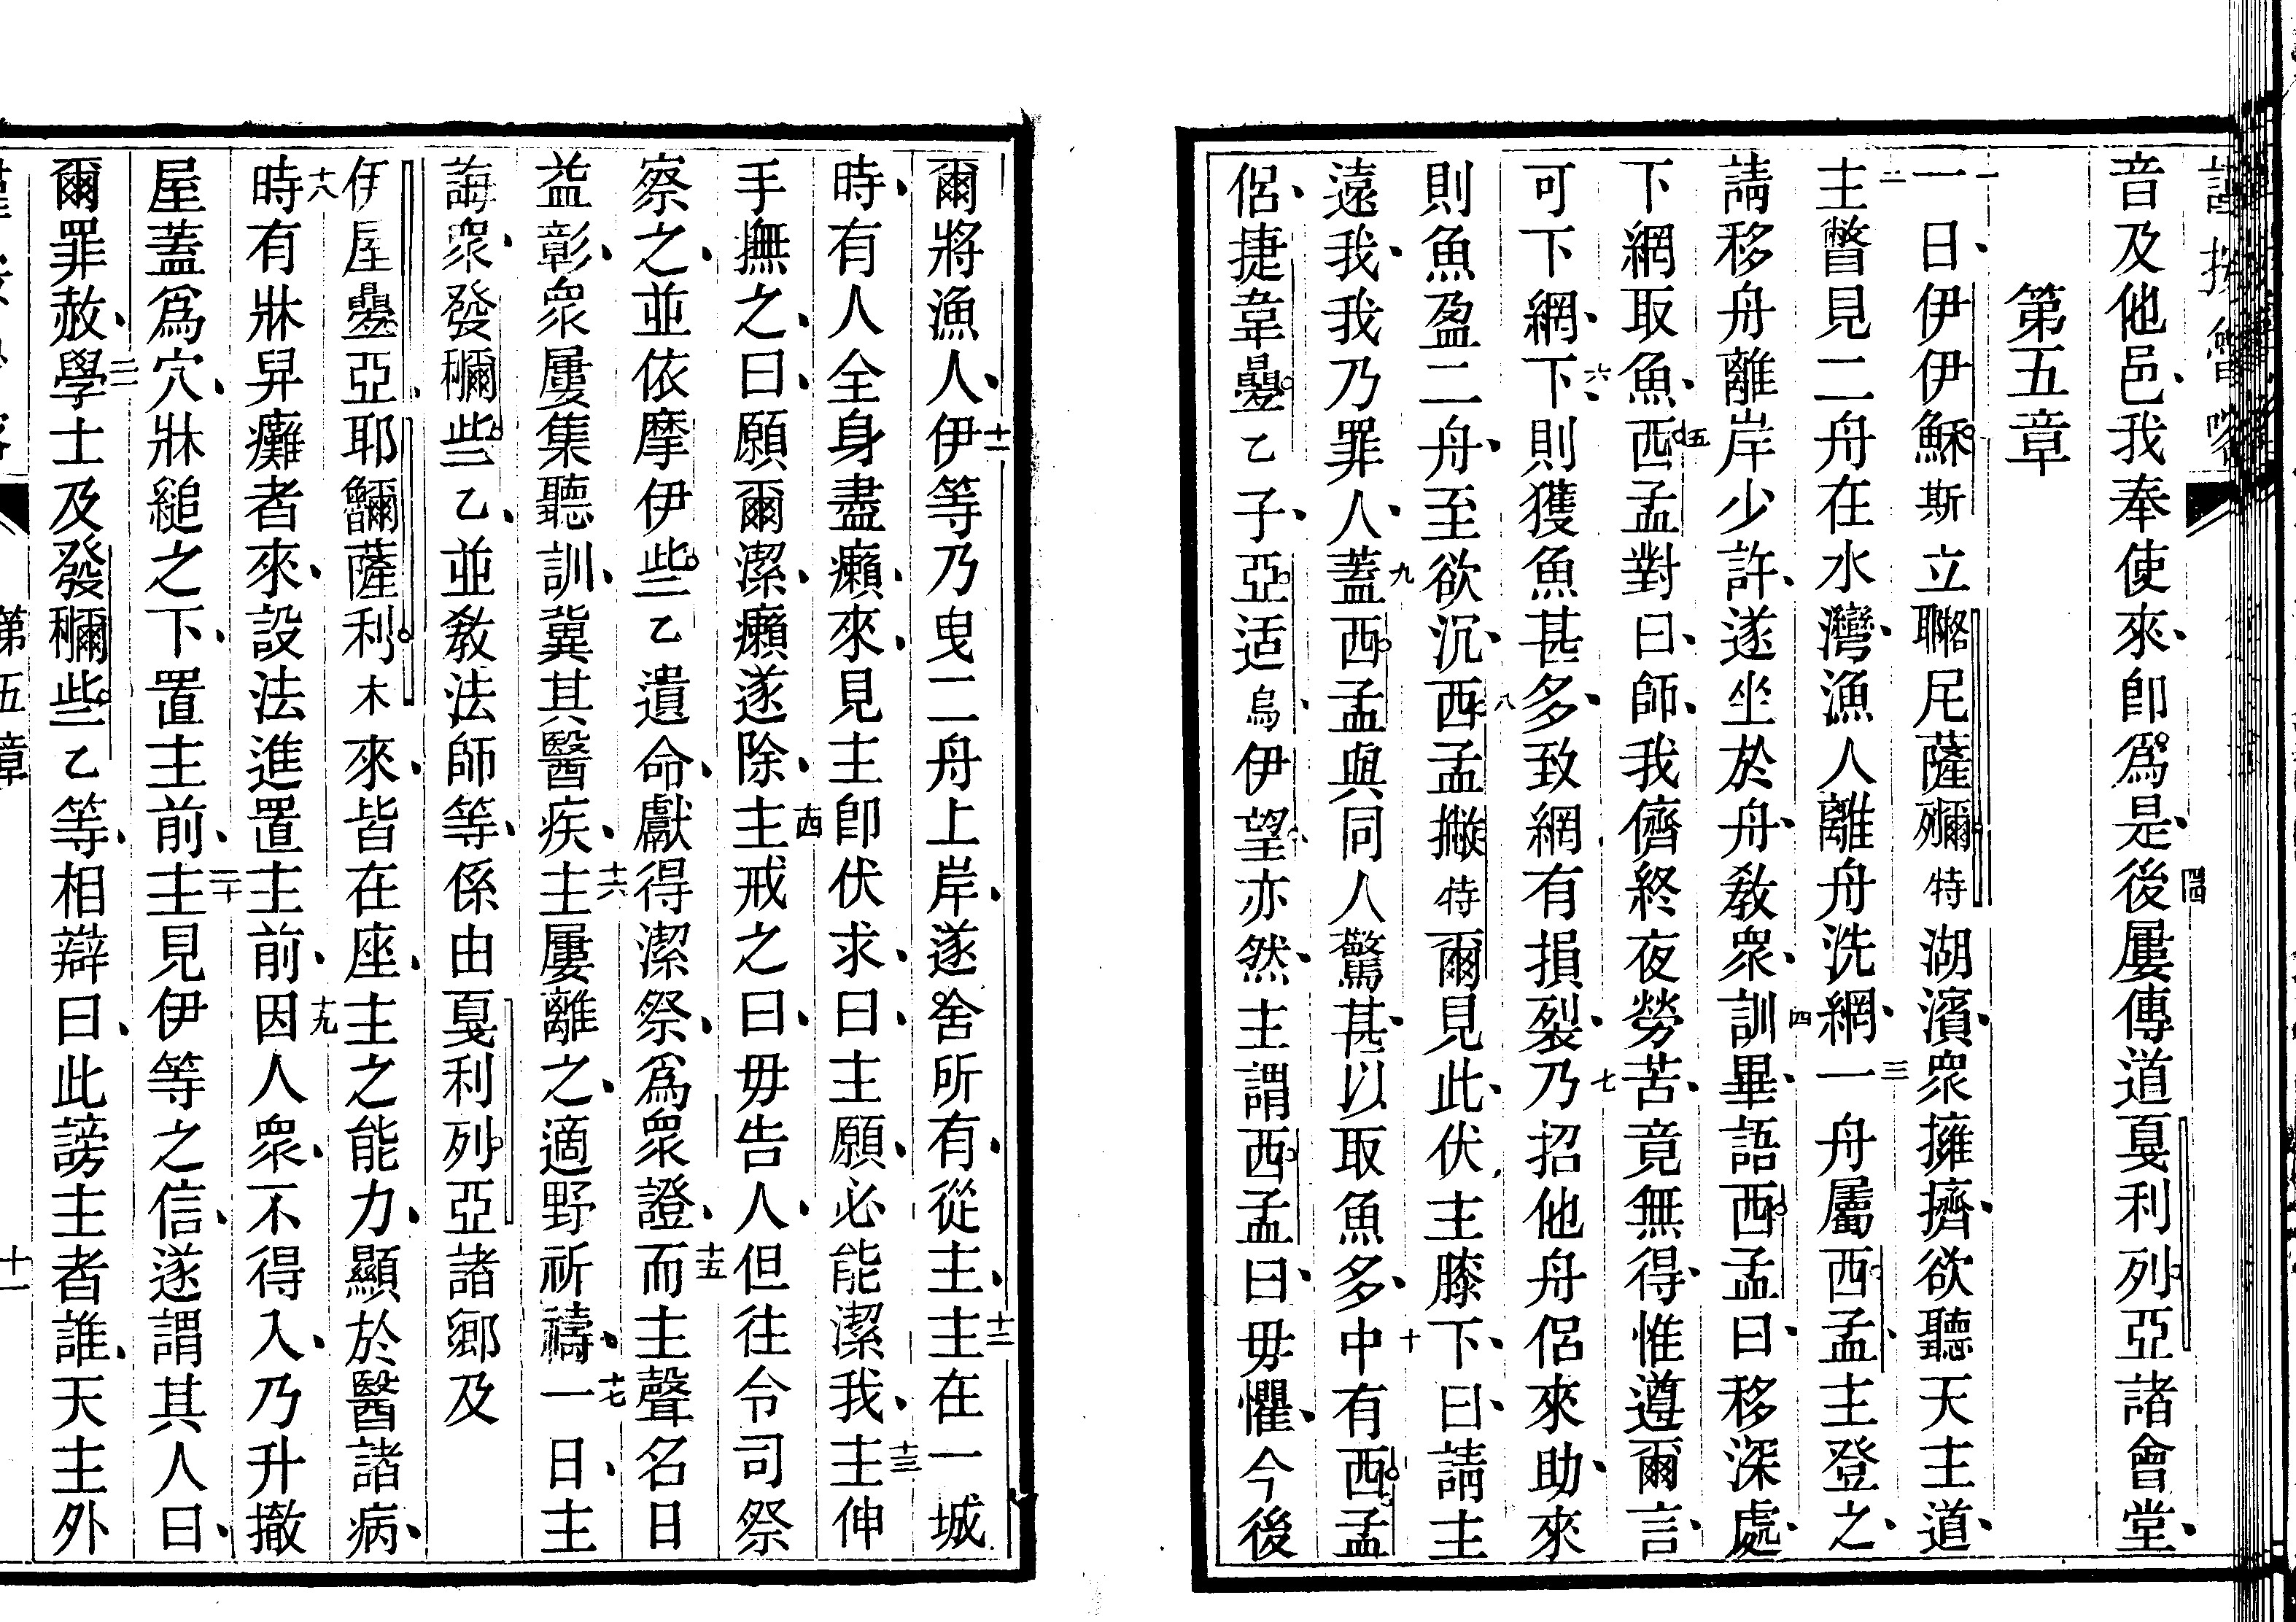 音及他邑、我奉使來、卽爲是、後屢傳道戛利列亞諸會堂、
第五章
一日、伊伊穌斯立聯尼薩彌特湖濱、眾擁擠、欲聽天主道、
主瞥見二舟在水灣、漁人離舟洗網、一舟屬西孟、主登之、
請移舟離岸少許、遂坐於舟、敎眾、訓畢、語西孟曰、移深處、
下網取魚、西孟對曰、師、我儕終夜勞苦、竟無得、惟遵爾言、
可下網、下、則獲魚甚多、致網有損裂、乃招他舟侶來助、來
則魚盈二舟、至欲沉、西孟撇特爾見此、伏主膝下、曰、請主
遠我、我乃罪人、蓋西孟與同人驚甚、以取魚多、中有西孟
侶、捷韋疊乙子、亞适烏、伊望、亦然、主謂西孟曰、毋懼、今後
爾將漁人、伊等乃曳二舟上岸、遂舍所有、從主、主在一城
時、有人全身盡癩、來、見主卽伏求、曰、主願、必能潔我、主伸
手撫之、曰、願爾潔、癩遂除、主戒之曰、毋告人、但往令司祭
察之、並依摩伊些乙遺命、獻得潔祭、爲眾證、而主聲名日
益彰、眾屢集聽訓、冀其醫疾、主屢離之、適野祈禱、一日、主
誨眾、發穪些乙、並敎法師等、係由戛利列亞諸鄉及
伊屋疊亞、耶薩利木來、皆在座、主之能力、顯於醫諸病、
時有牀舁癱者來、設法進置主前、因人眾、不得入、乃升撤
屋蓋爲穴、牀縋之下、置主前、主見伊等之信、遂謂其人曰、
爾罪赦、學士及發穪些乙等、相辯曰、此謗主者誰、天主外
第五章
十一